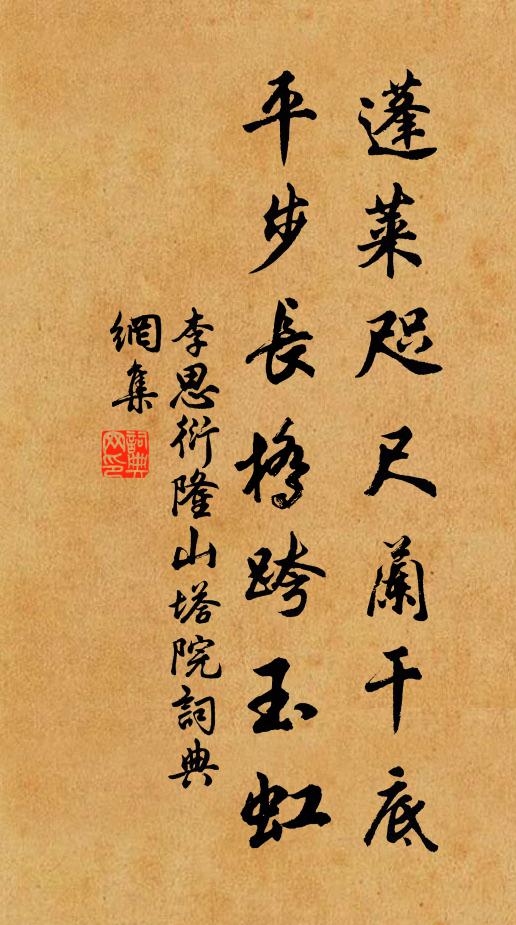 蓬萊咫尺蘭干底
平步長橋跨玉虹
李思衍隆山塔院詞典
網集
詞典網印